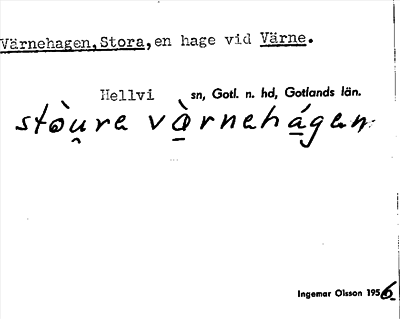 Värnehagen, Stora, en hage vid Värne.
Hellvi sn, Gotl. n. hd, Gotlands län.
stòu̯re và̱rnehá̱gen.
Ingemar Olsson 1956.